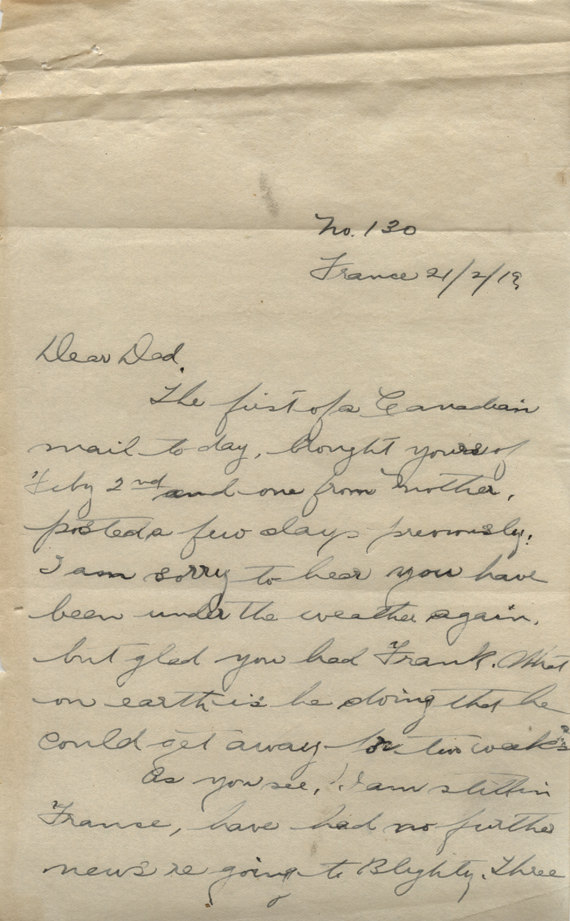 No. 130
France 21/2/19.
Dear Dad.
The first of a Canadian
mail today, brought yours of
Feby 2nd and one from Mother,
posted a few days previously.
I am sorry to hear you have
been under the weather again,
but glad you had Frank. What
on earth is he doing that he
could get away for two weeks
As you see, I am still in
France, have had no further
news re going to Blighty. Three